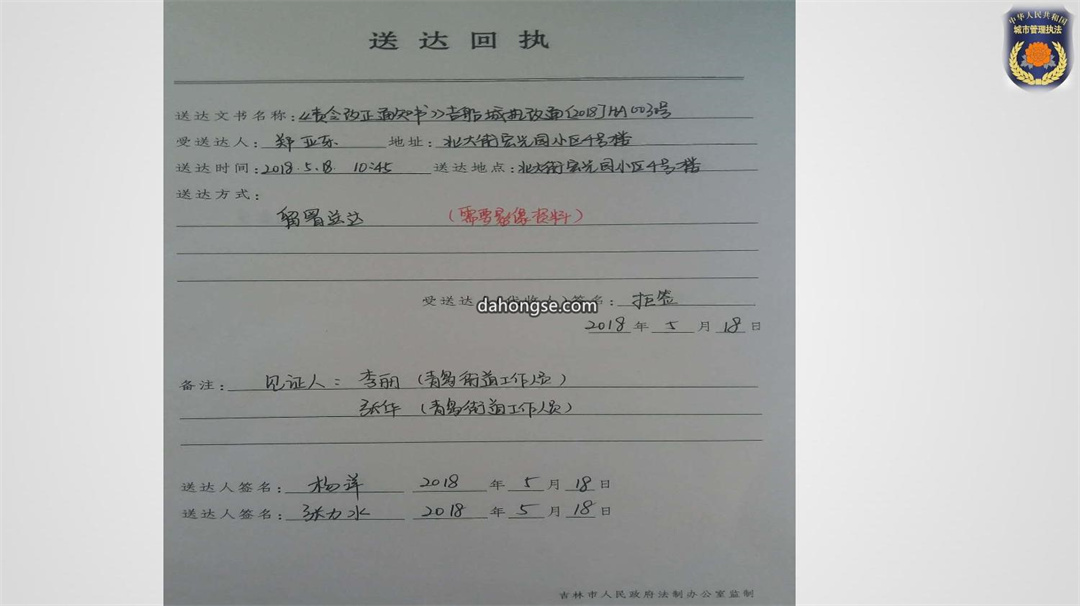 中华人民共和国
城市管理执法
送达回执
送达文书名称:《责令改正通知书》吉船城执改通[2018]HA003号
受送达人:郑亚东 地址:北大街宏光园小区4号楼
送达时间:2018.5.18. 10:45 送达地点:北大街宏光园小区4号楼
送达方式:
留置送达 (需要影像资料)
受送达 签名:拒签
dahongse.com
2018年5月18日
备注:见证人:李丽(青岛街道工作人员)
张华(青岛街道工作人员)
送达人签名:杨洋 2018年5月18日
送达人签名:张力水 2018年5月18日
吉林市人民政府法制办公室监制